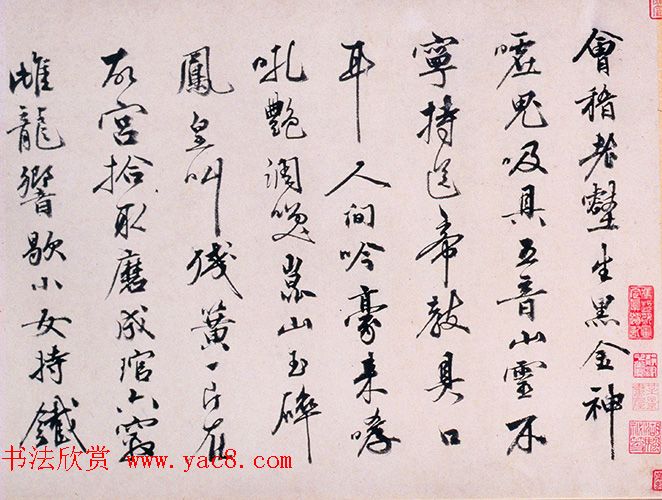 會稽老壑生黑金神
噓鬼吸具五音山靈不
寧持送帝教具口
耳人間吟豪來哮
吼艷潤喚崑山玉碎
鳳皇叫殘簧一片在
故宮拾取磨成琯六竅
雌龍響歇小女持鐵
书法欣赏 www.yac8.com